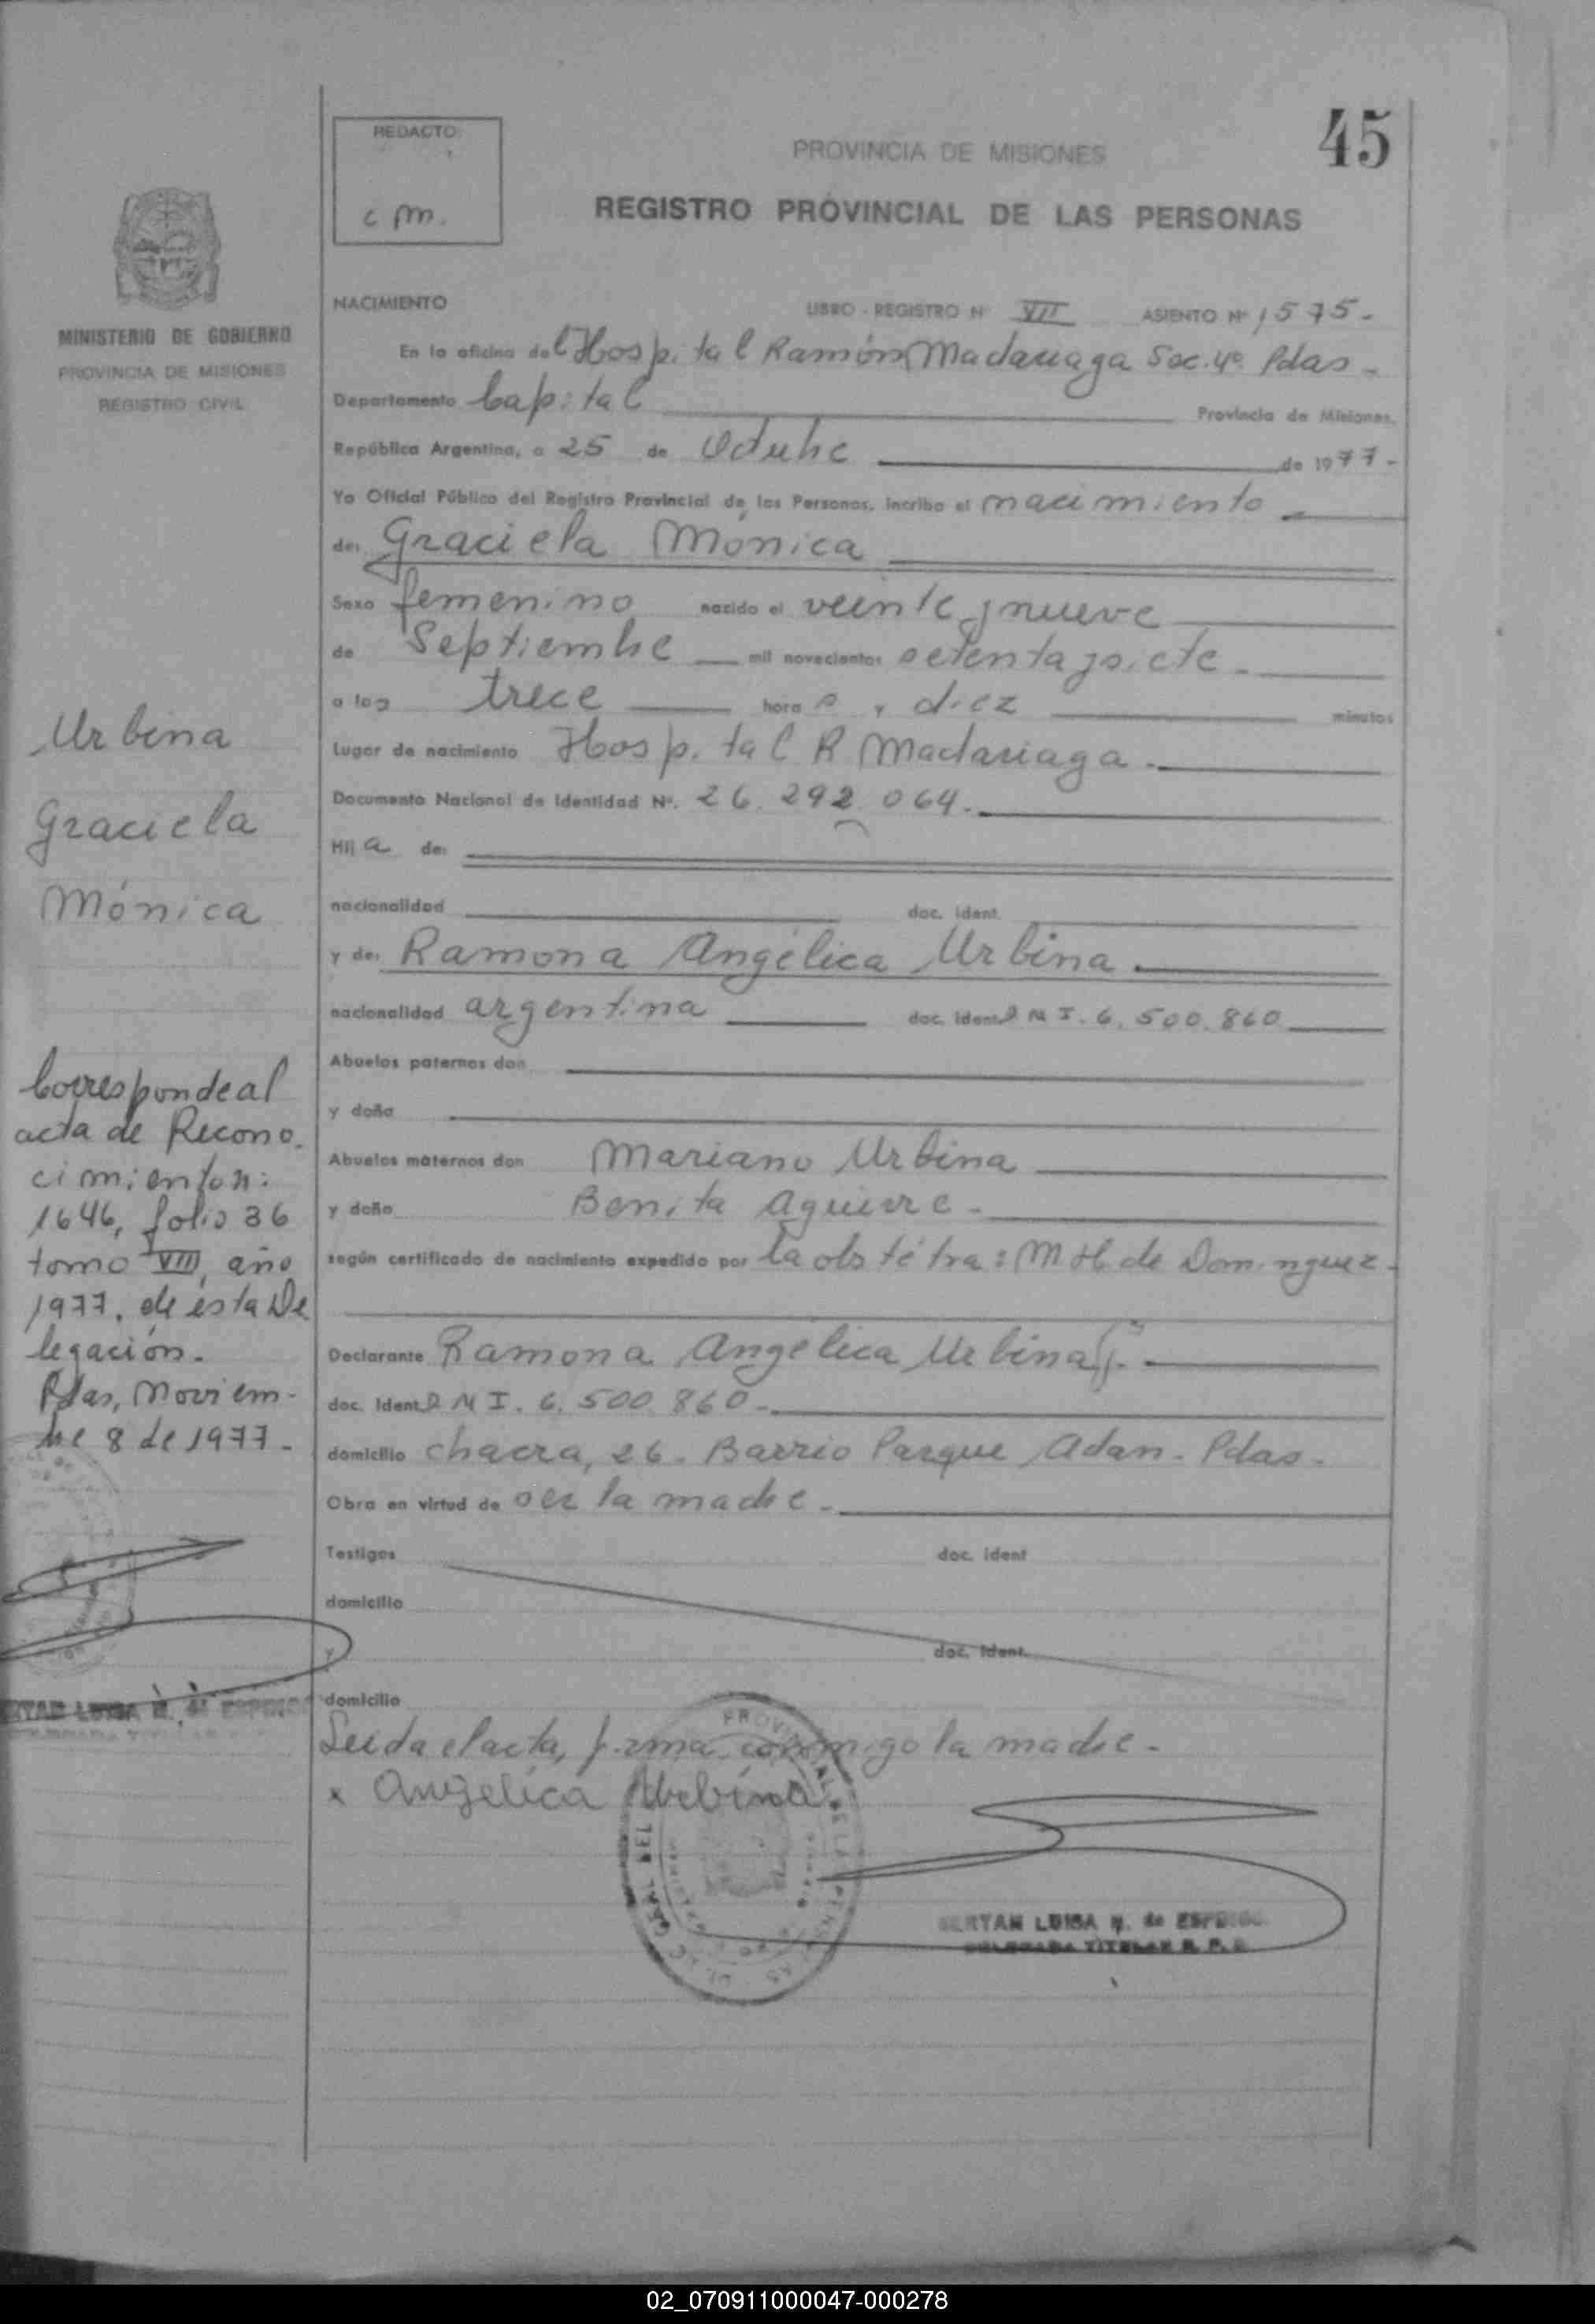 45
REDACTO:
c m.
PROVINCIA DE MISIONES
REGISTRO PROVINCIAL DE LAS PERSONAS
MINISTERIO DE GOBIERNO
PROVINCIA DE MISIONES
REGISTRO CIVIL
NACIMIENTO LIBRO - REGISTRO Nº VII ASIENTO Nº 1575.-
En la oficina del Hospital Ramón Madariaga Sec. 4º. Pdas.-
Departamento Capital Provincia de Misiones,
República Argentina, a 25 de Octubre de 1977-
Yo Oficial Público del Registro Provincial de las Personas, incribo el nacimiento
de: Graciela Mónica
Sexo femenino nacido el veinte y nueve
de Septiembre mil novecientos setenta y siete.
a las trece horas y diez minutos
Lugar de nacimiento Hospital R Madariaga.-
Documento Nacional de Identidad Nº. 26.292.064.-
Hij a de:
nacionalidad doc. ident.
y de: Ramona Angélica Urbina.
nacionalidad argentina doc. ident D N I. 6.500.860
Abuelos paternos don
y doña
Abuelos maternos don Mariano Urbina
y doña Benita Aguirre.-
según certificado de nacimiento expedido por la obstétra: M H. de Dominguez.-
Declarante Ramona Angélica Urbina
doc. Ident D N I. 6.500.860.-
domicilio chacra, 26. Barrio Parque Adan. Pdas.-
Obra en virtud de ser la madre.-
Testigos doc. ident
domicilio
y doc. ident.
domicilio
Leida el acta, firma conmigo la madre.-
x Angelica Urbina
BERTAN LUISA M. de ESPINOS
DELEGADA TITULAR R. P. P.
Urbina
Graciela
Mónica
Corresponde al
acta de Recono.
cimiento n:
1646, folio 36
tomo VIII, año
1977, de ésta De
legación.
Pdas, Noviem-
bre 8 de 1977.-
RTAN LUISA M. de ESPINOS
02_070911000047-000278